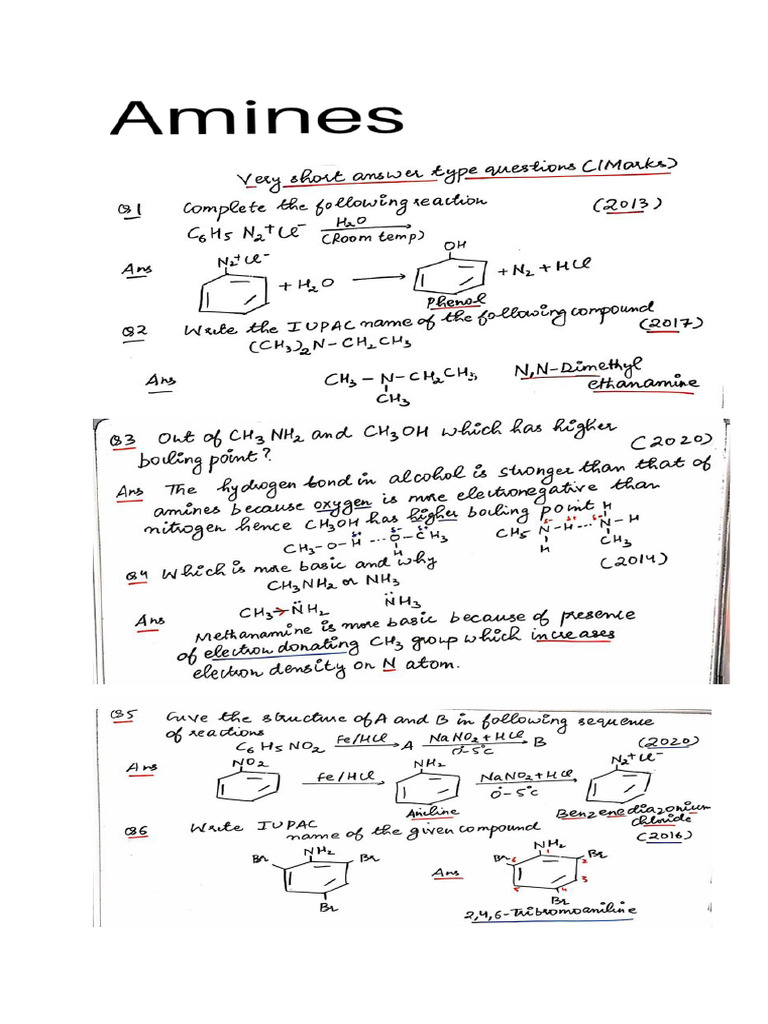 Amines
Very short answer type questions (1Marks)
Q1 Complete the following reaction (2013)
C6H5 N2+Cl- H2O
(Room temp)
Ans N2+Cl- + H2O → OH + N2 + HCl
Phenol
Q2 Write the IUPAC name of the following compound (2017)
(CH3)2N-CH2CH3
Ans CH3-N-CH2CH3, N,N-Dimethyl
CH3 ethanamine
Q3 Out of CH3NH2 and CH3OH which has higher (2020)
boiling point?
Ans The hydrogen bond in alcohol is stronger than that of
amines because oxygen is more electronegative than
nitrogen hence CH3OH has higher boiling point
CH3-O-H ---O-CH3 CH3 N-H---N-H
H H H CH3
Q4 Which is more basic and why (2014)
CH3NH2 or NH3
Ans CH3→NH2 NH3
Methanamine is more basic because of presence
of electron donating CH3 group which increases
electron density on N atom.
Q5 Give the structure of A and B in following sequence
of reactions
C6H5NO2 Fe/HCl A NaNO2+HCl B (2020)
0-5°C
Ans NO2 Fe/HCl NH2 NaNO2+HCl N2+Cl-
0-5°C
Aniline Benzenediazonium
chloride
Q6 Write IUPAC
name of the given compound (2016)
NH2 Br Br Br
Ans NH2 Br Br Br 1 2 3 4 5 6
2,4,6-Tribromoaniline